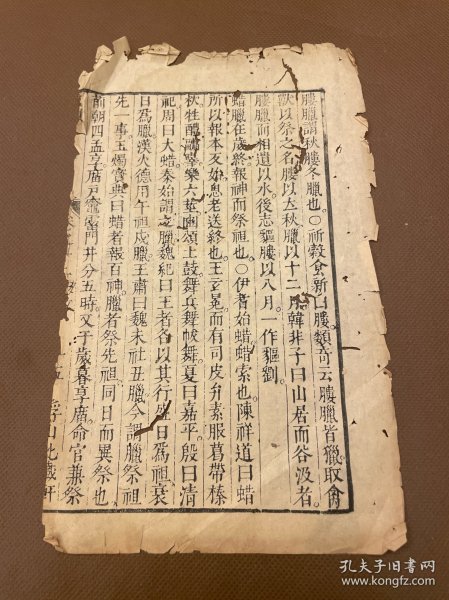 膢臘謂秋膢冬臘也○祈穀食新曰膢類奇云膢臘者獵取禽
獸以祭之名膢以立秋臘以十二月韓非子曰山居而谷汲者
膢臘而相遺以水後志貙膢以八月一作貙劉
蜡臘在歲終報神而祭祖也○伊耆始蜡蜡索也陳祥道曰蜡
所以報本反始息老送終也王玄冕而有司皮弁素服葛帶榛
杖牲醢辜樂六英豳頌土鼓舞兵舞帗舞夏曰嘉平殷曰清
祀周曰大蜡秦始謂之臘魏紀曰王者各以其行盛日為祖衰
日為臘漢火德用午祖戌臘王肅曰魏未社丑臘今謂臘祭祖
先一事玉燭寶典曰蜡者報百神臘者祭先祖同日而異祭也
前朝四孟享廟戶竈門井分五時又于歲暮享廟命官兼祭
浮山此藏軒
孔夫子旧书网
www.kongfz.com